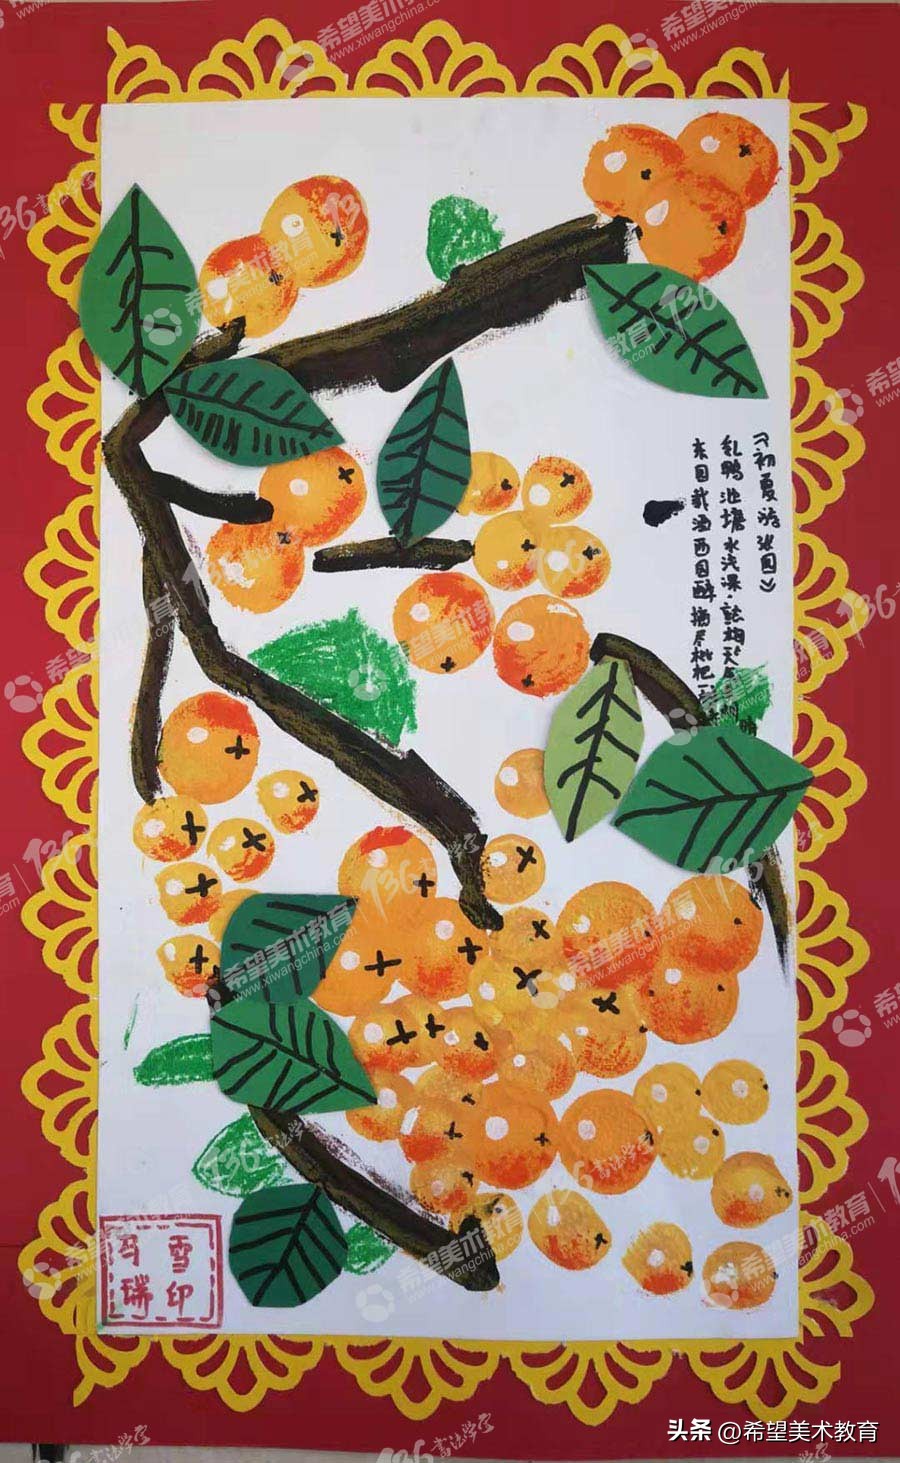 《初夏游张园》
乳鸭池塘水浅深.熟梅天
东园载酒西园醉摘尽枇杷一
雪印
冯瑞
希望美术教育
www.xiwangchina.com
136书法学堂
头条 @希望美术教育